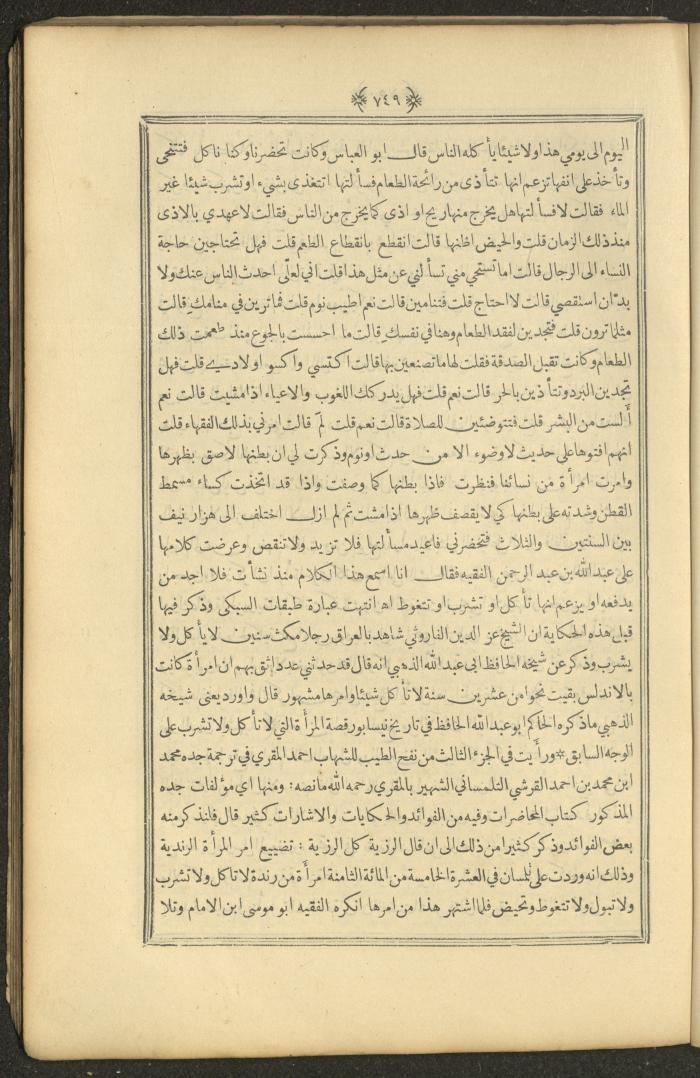 ﴿٧٤٩﴾
اليوم الى يومي هذا ولا شيئا يأكله الناس قال ابو العباس وكانت تحضرنا وكنا نأكل فتتنحى
وتأخذ على انفها تزعم انها تتأذى من رائحة الطعام فسألتها اتتغذى بشيء او تشرب شيئا غير
الماء فقالت لا فسألتها هل يخرج منها ريح او اذى كما يخرج من الناس فقالت لا عهدي بالاذى
منذ ذلك الزمان قلت والحيض اظنها قالت انقطع بانقطاع الطعم قلت فهل تحتاجين حاجة
النساء الى الرجال قالت اما تستحي مني تسألني عن مثل هذا قلت اني لعلّي احدث الناس عنك ولا
بدّ ان استقصي قالت لا احتاج قلت فتنامين قالت نعم اطيب نوم قلت فما ترين في منامك قالت
مثلما ترون قلت فتجدين لفقد الطعام وهنا في نفسك قالت ما احسست بالجوع منذ طعمت ذلك
الطعام وكانت تقبل الصدقة فقلت لها ما تصنعين بها قالت اكتسي واكسو اولادي قلت فهل
تجدين البرد وتتأذين بالحر قالت نعم قلت فهل يدركك اللغوب والاعياء اذا مشيت قالت نعم
ألست من البشر قلت فتتوضئين للصلاة قالت نعم قلت لمَ قالت امرني بذلك الفقهاء قلت
انهم افتوها على حديث لا وضوء الا من حدث او نوم وذكرت لي ان بطنها لاصق بظهرها
وامرت امرأة من نسائنا فنظرت فاذا بطنها كما وصفت واذا قد اتخذت كساء مسمط
القطن وشدته على بطنها كي لا يقصف ظهرها اذا مشت ثم لم ازل اختلف الى هزار نيف
بين السنتين والثلاث فتحضرني فاعيد مسألتها فلا تزيد ولا تنقص وعرضت كلامها
على عبد الله بن عبد الرحمن الفقيه فقال انا اسمع هذا الكلام منذ نشأت فلا اجد من
يدفعه او يزعم انها تأكل او تشرب او تتغوط اه انتهت عبارة طبقات السبكي وذكر فيها
قبل هذه الحكاية ان الشيخ عز الدين الفاروثي شاهد بالعراق رجلا مكث سنين لا يأكل ولا
يشرب وذكر عن شيخه الحافظ ابى عبد الله الذهبي انه قال قد حدثني عدد اثق بهم ان امرأة كانت
بالاندلس بقيت نحوا من عشرين سنة لا تأكل شيئا وامرها مشهور قال واورد يعني شيخه
الذهبي ما ذكره الحاكم ابو عبد الله الحافظ في تاريخ نيسابور قصة المرأة التي لا تأكل ولا تشرب على
الوجه السابق * ورأيت في الجزء الثالث من نفح الطيب للشهاب احمد المقري في ترجمة جده محمد
ابن محمد بن احمد القرشي التلمساني الشهير بالمقري رحمه الله ما نصه : ومنها اي مؤلفات جده
المذكور كتاب المحاضرات وفيه من الفوائد والحكايات والاشارات كثير قال فلنذكر منه
بعض الفوائد وذكر كثيرا من ذلك الى ان قال الرزية كل الرزية : تضييع امر المرأة الرندية
وذلك انه وردت على تلمسان في العشرة الخامسة من المائة الثامنة امرأة من رندة لا تاكل ولا تشرب
ولا تبول ولا تتغوط وتحيض فلما اشتهر هذا من امرها انكره الفقيه ابو موسى ابن الامام وتلا